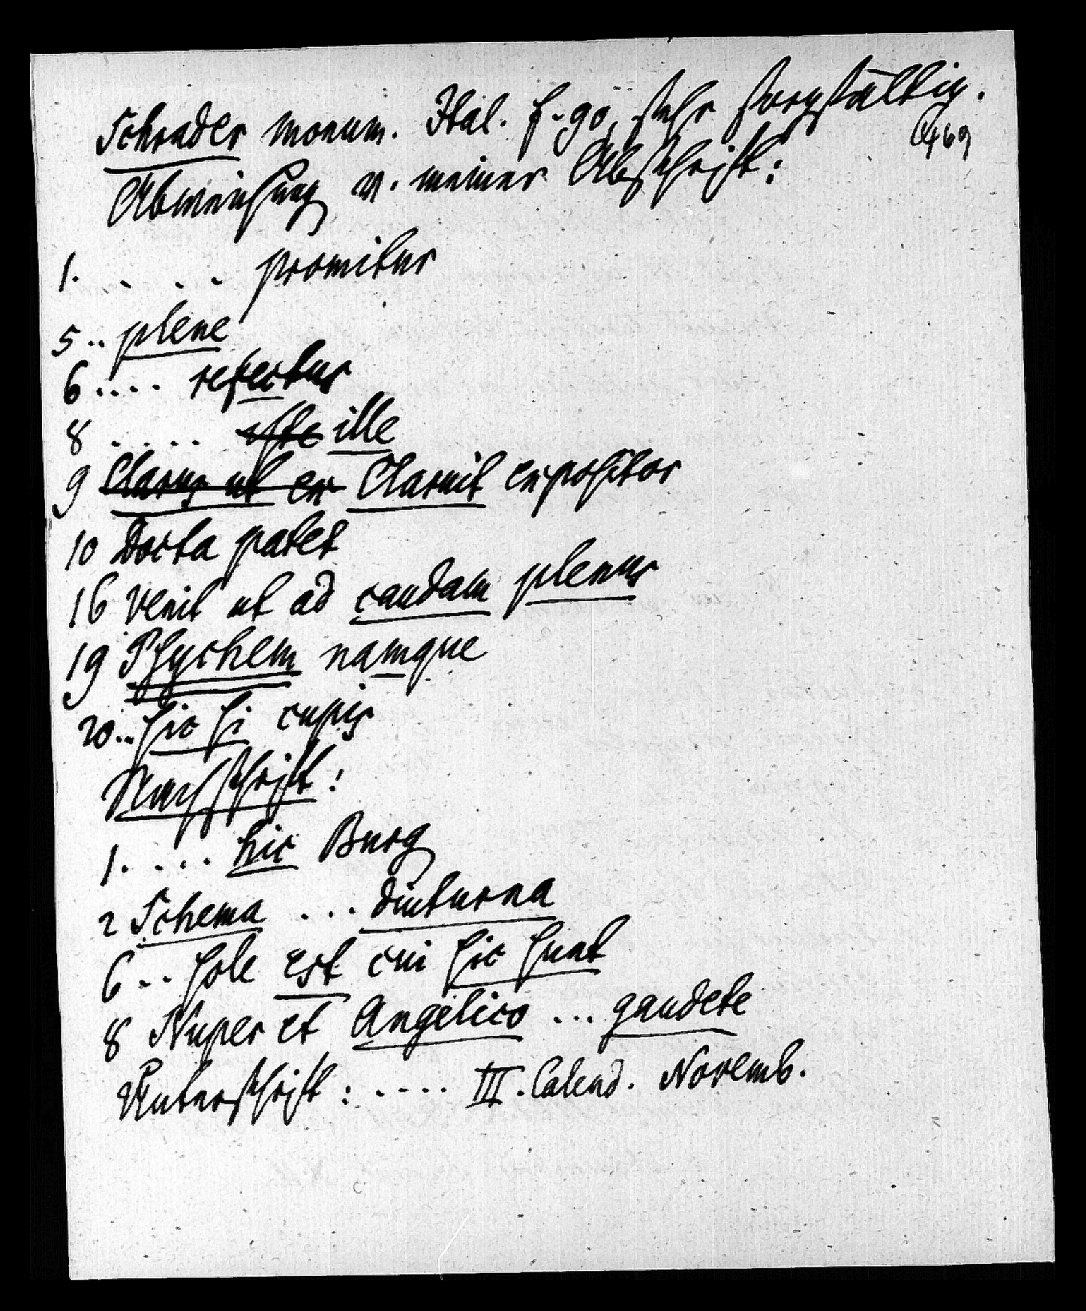 Schrader monum. Ital. f. 90, sehr sorgfältig.
469
Abweichung v. meiner Abschrift:
1. . . . promitur
5 .. plene
6 .... refectus
8 ..... ille
9 Clarus ut ex Claruit expositor
10 Docta patet
16 Venit ut ad caudam plenus
19 Psychem namque
20... hic si cupis
Nachschrift:
1. ... hic Burg
2 Schema ... diuturna
6 .. sole est cui hic sunt
8 Nuper et Angelico ... gaudete
Unterschrift: .... III. Calend. Novemb.